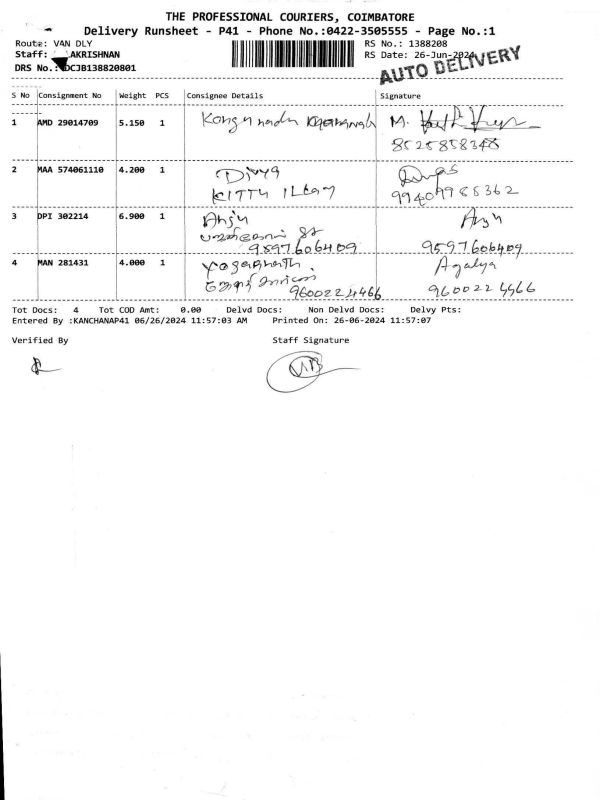 THE PROFESSIONAL COURIERS, COIMBATORE
Delivery Runsheet - P41 - Phone No.:0422-3505555 - Page No.:1
Route: VAN DLY RS No.: 1388208
Staff: AKRISHNAN RS Date: 26-Jun-2024
DRS No.: DCJB138820801 AUTO DELIVERY
S No Consignment No Weight PCS Consignee Details Signature
1 AMD 29014709 5.150 1 Kongunadu M.
8525858348
2 MAA 574061110 4.200 1 Divya
KITTU Illam 99409985362
3 DPI 302214 6.900 1 Anju Anju
St
9597606409 9597606409
4 MAN 281431 4.000 1 Yogabharth. Agalya
9600224466 9600224466
Tot Docs: 4 Tot COD Amt: 0.00 Delvd Docs: Non Delvd Docs: Delvy Pts:
Entered By :KANCHANAP41 06/26/2024 11:57:03 AM Printed On: 26-06-2024 11:57:07
Verified By Staff Signature